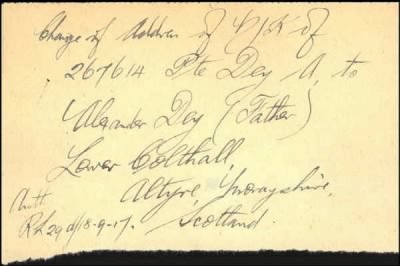 Change of Address of N/K of
267614 Pte Dey A, to
Alexander Dey (Father)
Lower Colthall,
Altyre, Morayshire,
Scotland.
Auth
R.L. 29 d/18-9-17.